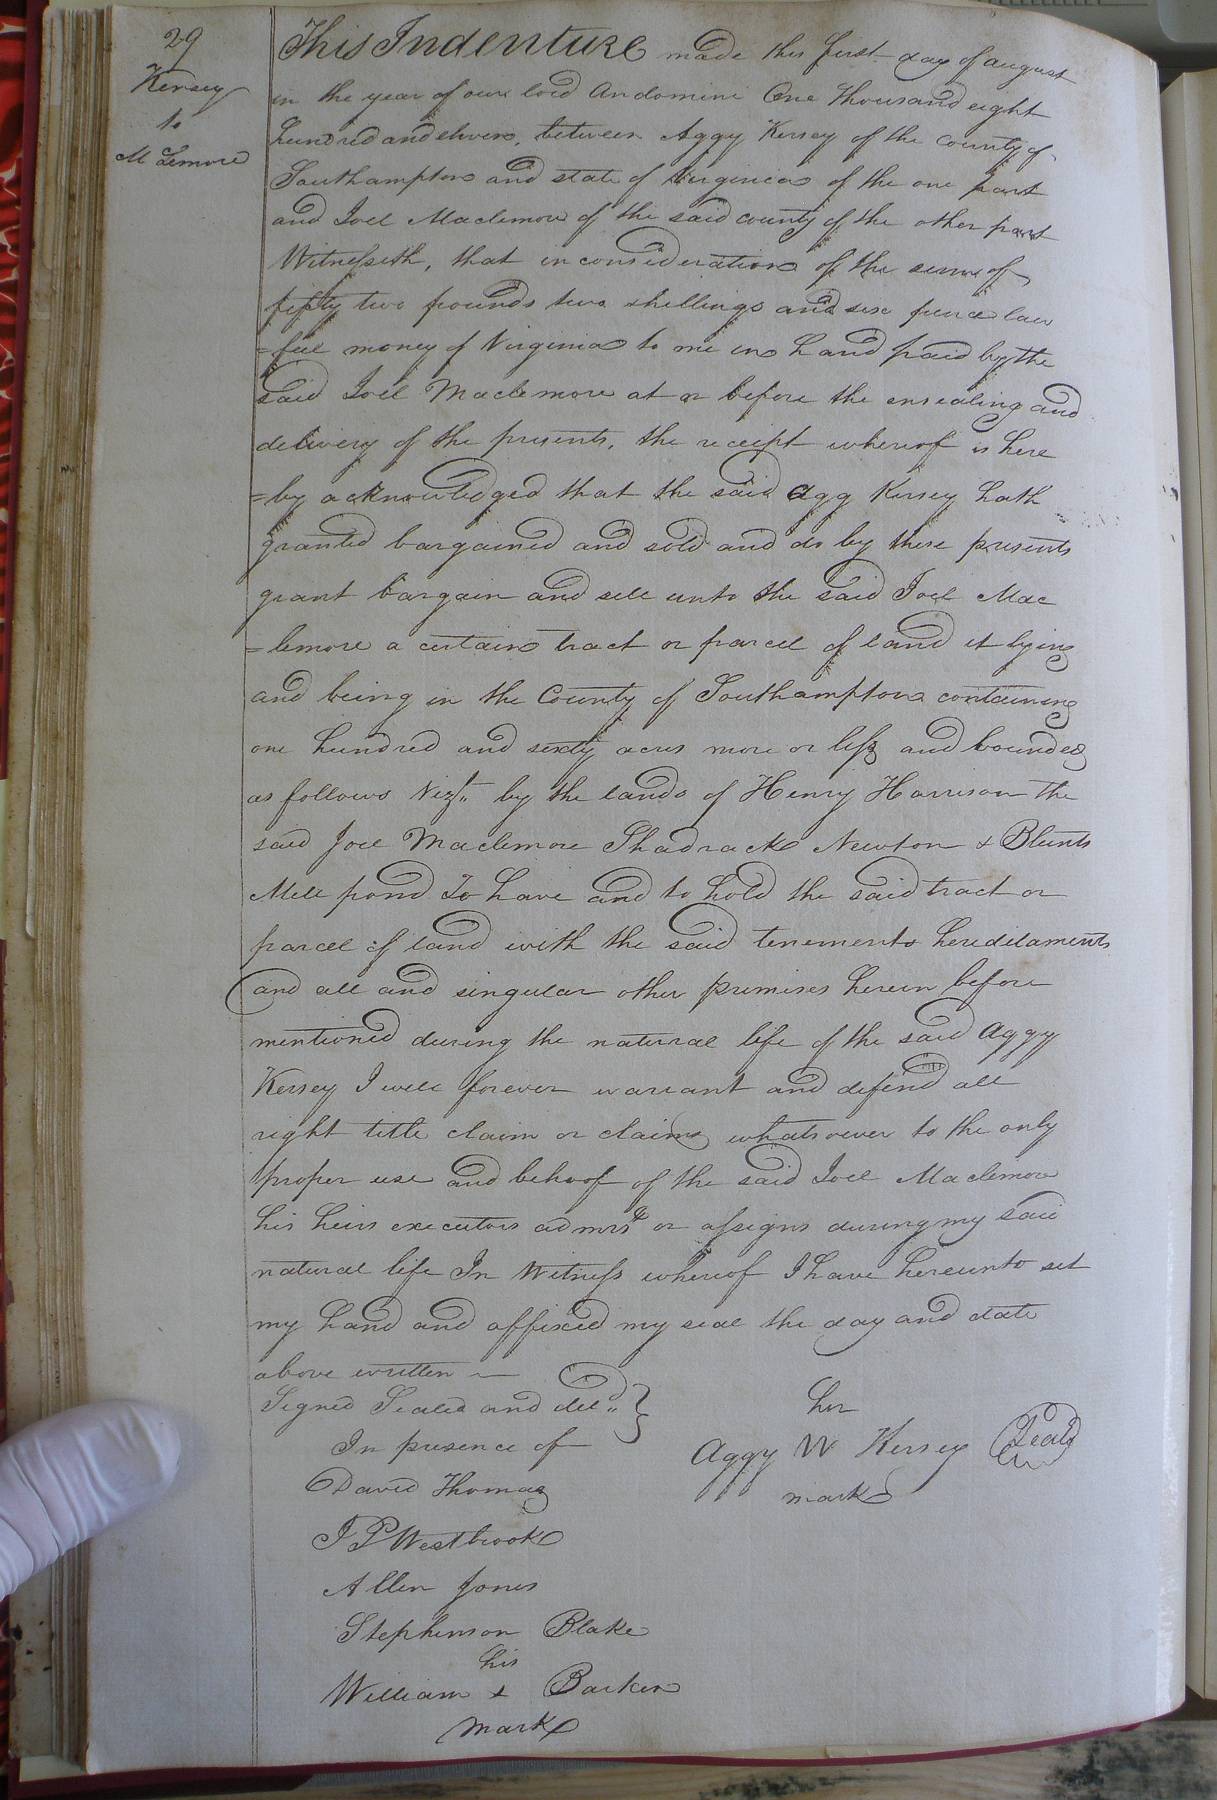 29
Kersey
to
McLemore
This Indenture made this first day of august
in the year of our lord Andomini One thousand eight
hundred and eleven, between Aggy Kersey of the County of
Southampton and state of Virginia of the one part
and Joel Maclemore of the said county of the other part
Witnesseth, that in consideration of the sum of
fifty two pounds two shillings and six pence law
=ful money of Virginia to me in hand paid by the
said Joel Maclemore at or before the ensealing and
delivery of the presents, the receipt whereof is here
=by acknowledged that the said Agg Kersey hath
granted bargained and sold and do by these presents
grant bargain and sell unto the said Joel Mac
=lemore a certain tract or parcel of land it lying
and being in the County of Southampton containing
one hundred and sixty acres more or less and bounded
as follows Vizt. by the lands of Henry Harrison the
said Joel Maclemore Shadrack Newton & Blunts
Mill pond To have and to hold the said tract or
parcel of land with the said tenements hereditaments
and all and singular other premises herein before
mentioned during the natural life of the said Aggy
Kersey I will forever warrant and defend all
right title claim or claims whatsoever to the only
proper use and behoof of the said Joel Maclemore
his heirs executors admrs or assigns during my said
natural life In Witness whereof I have hereunto set
my hand and affixed my seal the day and date
above written
Signed Sealed and deld.. }
In presence of
her
Aggy W Kersey (Seal)
mark
David Thomas
J P Westbrook
Allen Jones
Stephenson Blake
his
William + Barker
mark